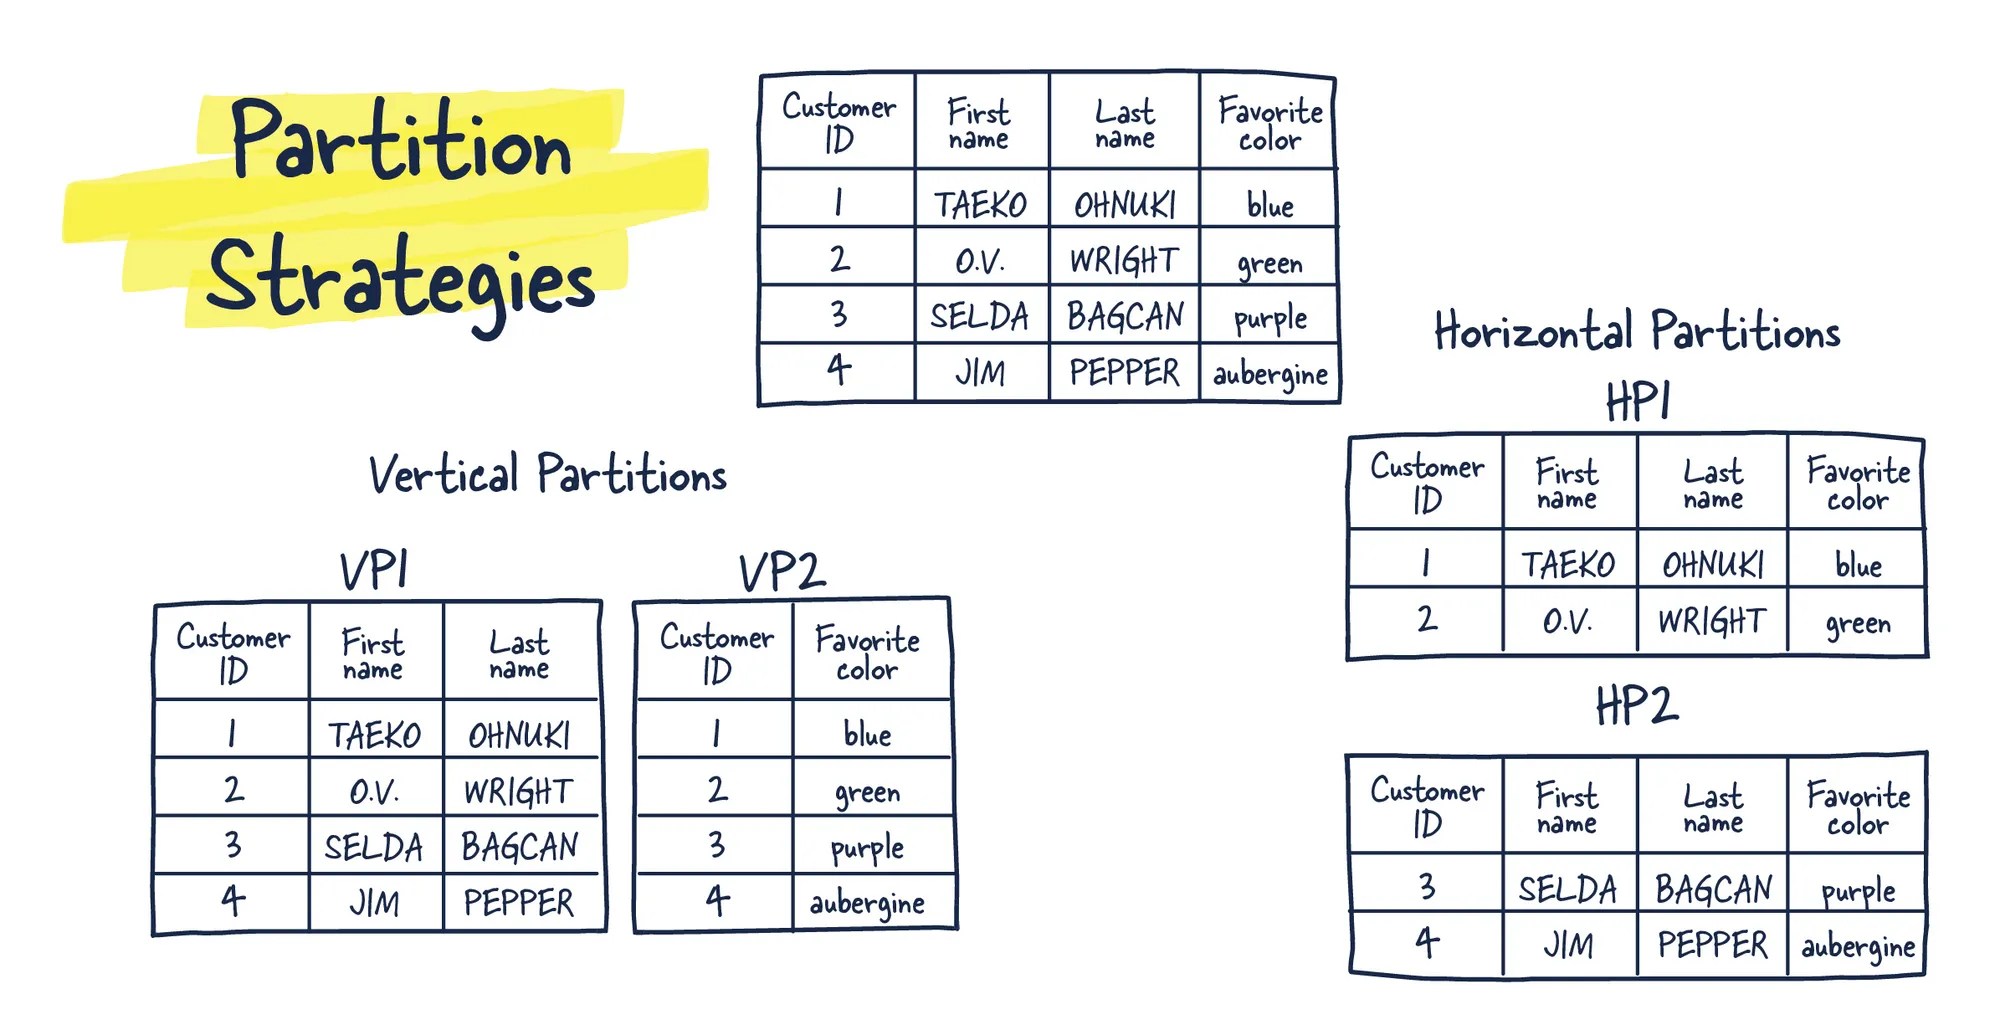 Partition
Strategies
Customer ID First name Last name Favorite color
1 TAEKO OHNUKI blue
2 O.V. WRIGHT green
3 SELDA BAGCAN purple
4 JIM PEPPER aubergine
Vertical Partitions
VP1
Customer ID First name Last name
1 TAEKO OHNUKI
2 O.V. WRIGHT
3 SELDA BAGCAN
4 JIM PEPPER
VP2
Customer ID Favorite color
1 blue
2 green
3 purple
4 aubergine
Horizontal Partitions
HP1
Customer ID First name Last name Favorite color
1 TAEKO OHNUKI blue
2 O.V. WRIGHT green
HP2
Customer ID First name Last name Favorite color
3 SELDA BAGCAN purple
4 JIM PEPPER aubergine